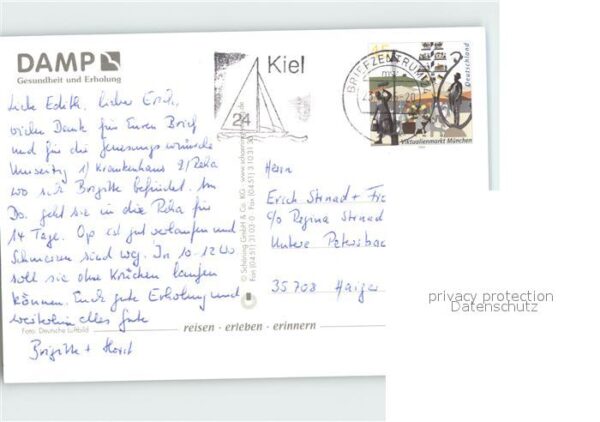 DAMP
Gesundheit und Erholung
Liebe Edith, lieber Erich,
vielen Dank für Euren Brief
und für die Genesungswünsche
Umseitig 1) Krankenhaus 2) Reha
wo sich Brigitte befindet. Am
Do. geht sie in die Reha für
14 Tage. Op ist gut verlaufen und
Schmerzen sind weg. In 10-12 Wo.
soll sie ohne Krücken laufen
können. Euch gute Erholung und
weiterhin alles Gute
Brigitte + Horst
Foto: Deutsche Luftbild
reisen · erleben · erinnern
Kiel
24
BRIEFZENTRUM 24
Deutschland
Viktualienmarkt München
© Schöning GmbH & Co. KG
Herrn
Erich + 
c/o Regina
Untere
35708 Haiger
privacy protection
Datenschutz